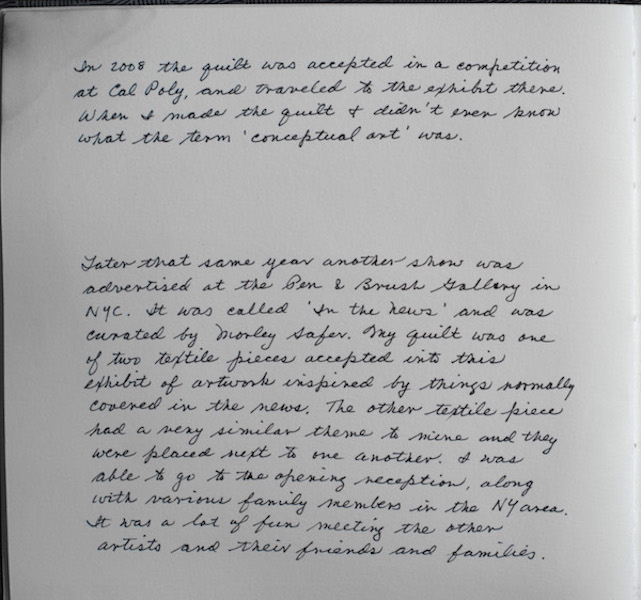 In 2008 the quilt was accepted in a competition
at Cal Poly, and traveled to the exhibit there.
When I made the quilt I didn't even know
what the term 'conceptual art' was.
Later that same year another show was
advertised at the Pen & Brush Gallery in
NYC. It was called 'In the News' and was
curated by Morley Safer. My quilt was one
of two textile pieces accepted into this
exhibit of artwork inspired by things normally
covered in the news. The other textile piece
had a very similar theme to mine and they
were placed next to one another. I was
able to go to the opening reception, along
with various family members in the NY area.
It was a lot of fun meeting the other
artists and their friends and families.